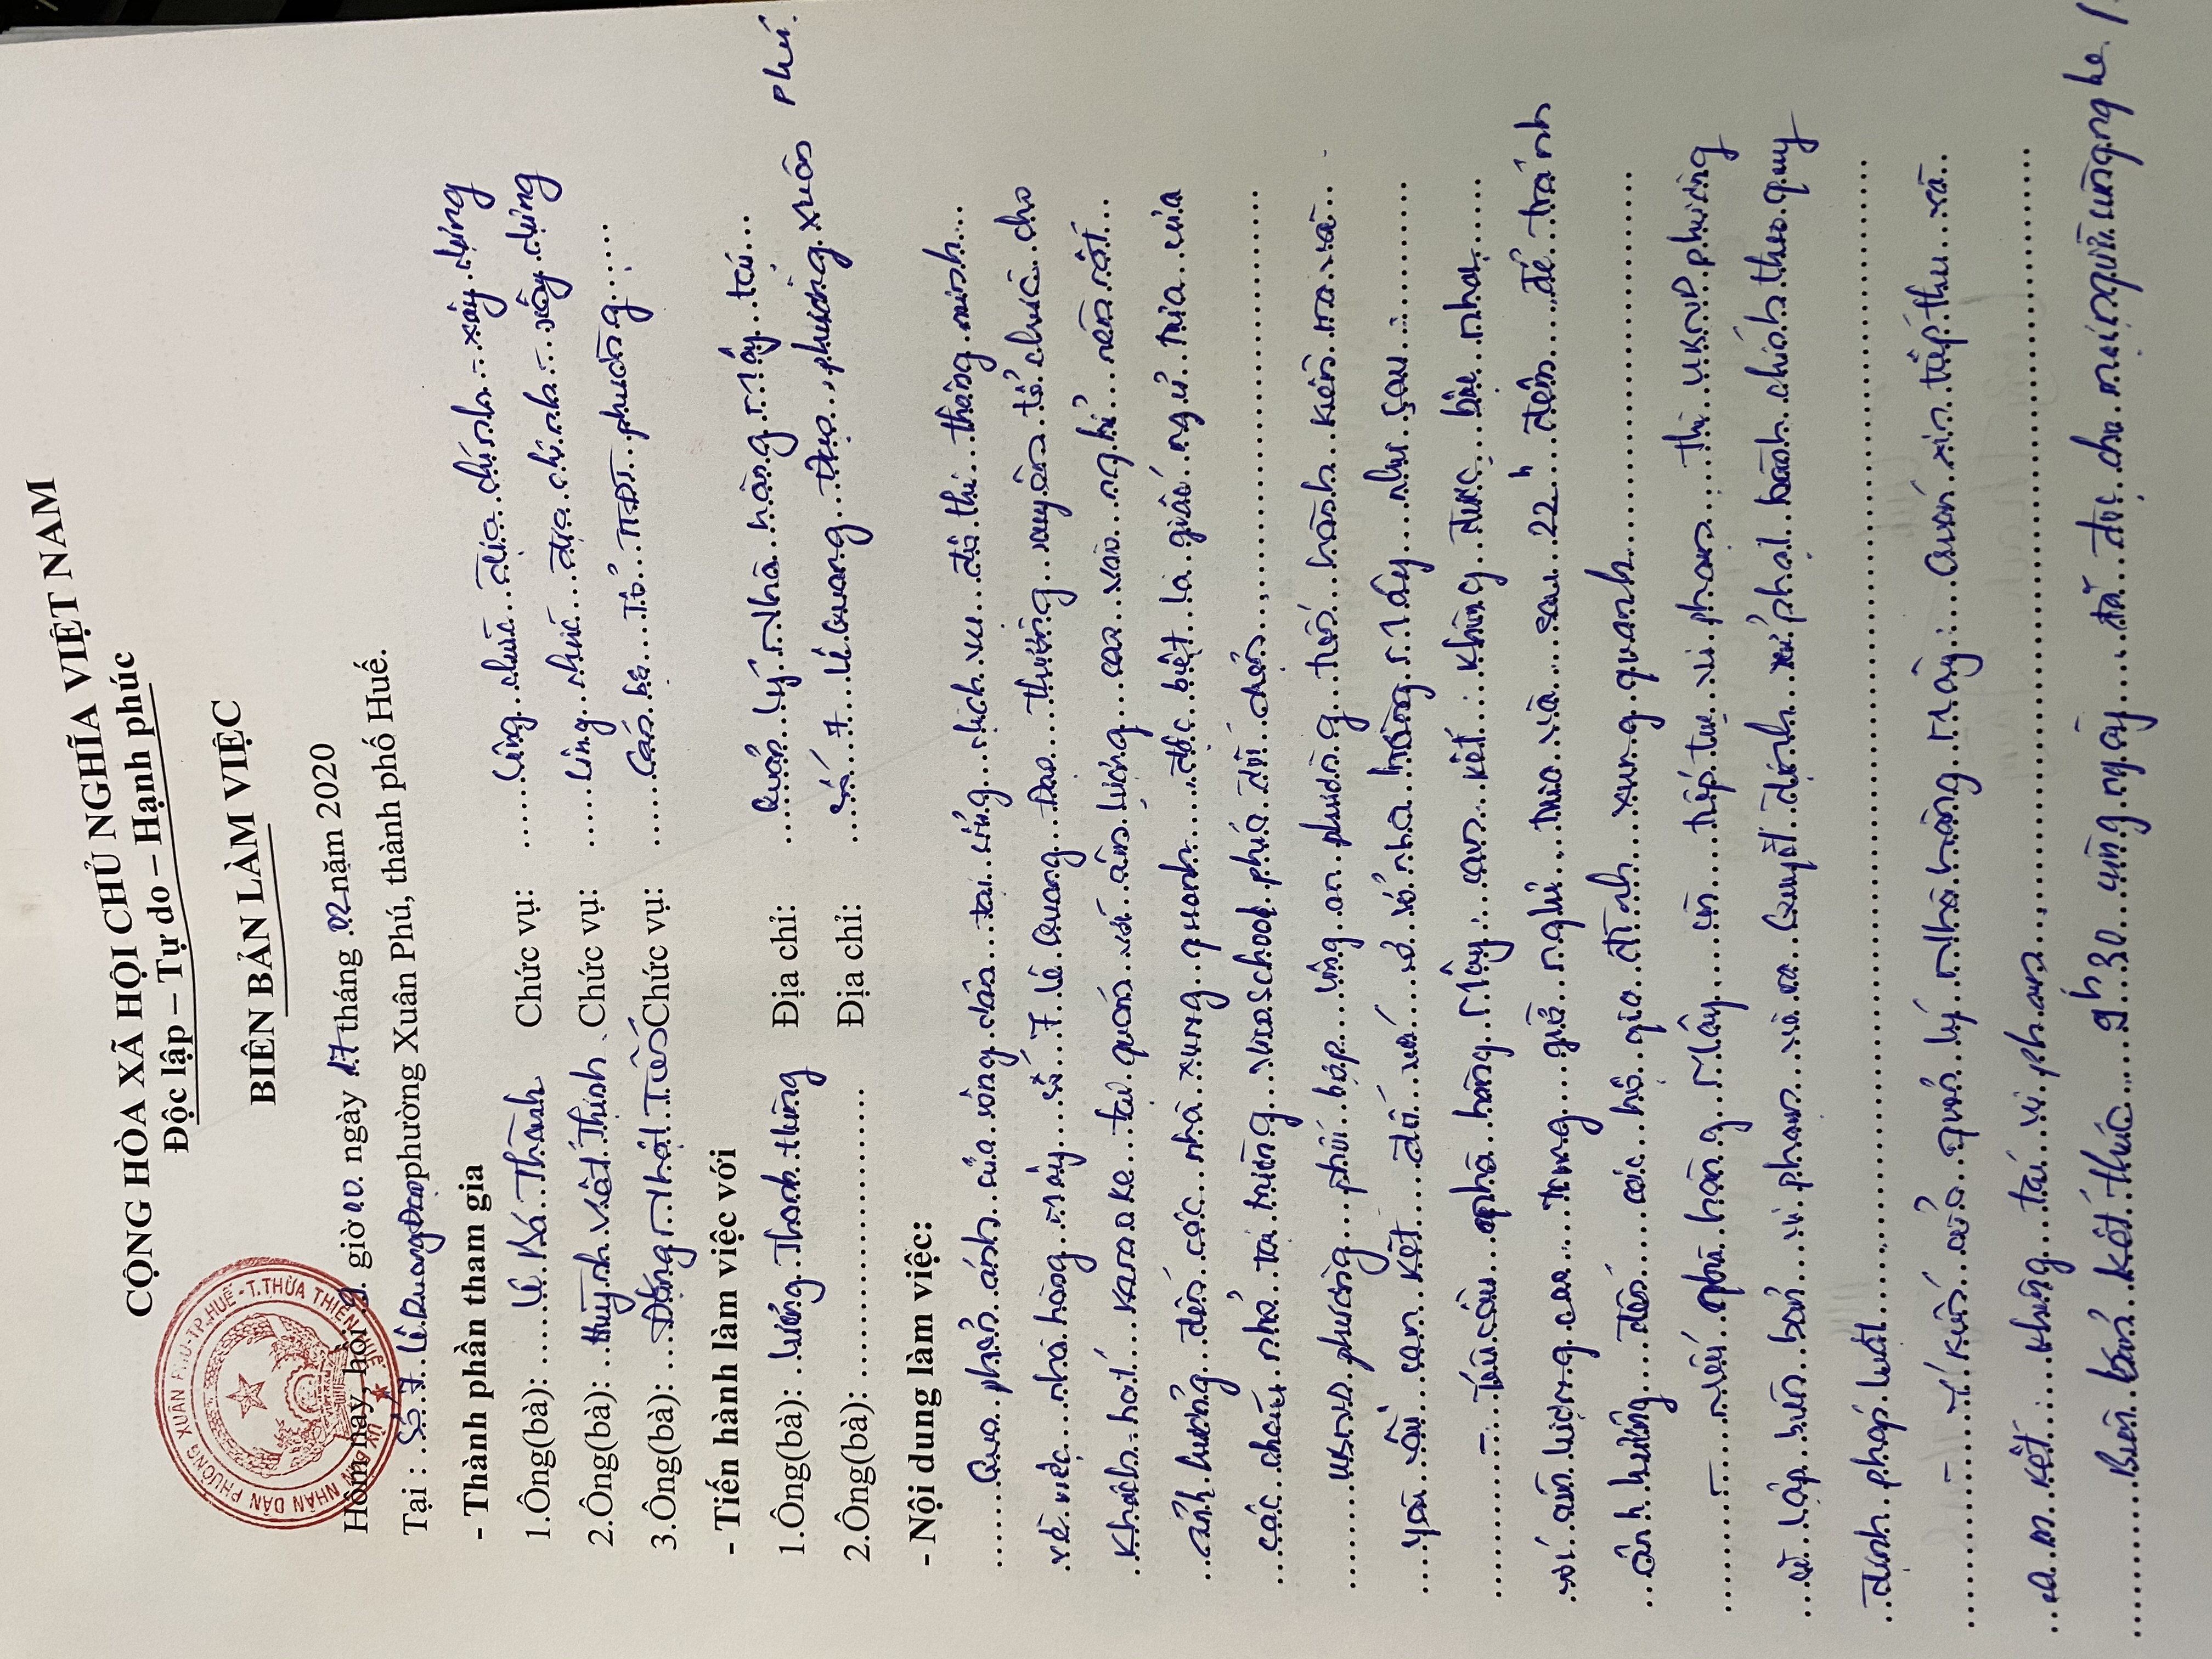 CỘNG HÒA XÃ HỘI CHỦ NGHĨA VIỆT NAM
Độc lập – Tự do – Hạnh phúc
BIÊN BẢN LÀM VIỆC
NHÂN DÂN PHƯỜNG XUÂN PHÚ-TP.HUẾ - T.THỪA THIÊN HUẾ ỦY BAN
Hôm nay, hồi 9 giờ 00 ngày 17 tháng 02 năm 2020
Tại : Số 7 Lê Quang Đạo phường Xuân Phú, thành phố Huế.
- Thành phần tham gia
1.Ông(bà): Lê Bá Thành Chức vụ: Công chức địa chính - xây dựng
2.Ông(bà): Huỳnh Viết Thịnh Chức vụ: Công chức địa chính - xây dựng
3.Ông(bà): Đặng Nhật Tiến Chức vụ: Cán bộ Tổ TTĐT phường
- Tiến hành làm việc với
1.Ông(bà): Lương Thanh Hùng Địa chỉ: Quản lý Nhà hàng Mây tại
2.Ông(bà): Địa chỉ: số 7 Lê Quang Đạo, phường Xuân Phú.
- Nội dung làm việc:
Qua phản ánh của công dân tại cổng dịch vụ đô thị thông minh
về việc nhà hàng Mây số 7 Lê Quang Đạo thường xuyên tổ chức cho
khách hát karaoke tại quán với âm lượng cao vào nghỉ nên rất
ảnh hưởng đến các nhà xung quanh đặc biệt là giấc ngủ trưa của
các cháu nhỏ tại trường school phía đối diện.
UBND phường phối hợp công an phường tiến hành kiểm tra và
yêu cầu cam kết đối với cơ sở nhà hàng Mây như sau:
- Yêu cầu nhà hàng Mây cam kết không được bật nhạc
với âm lượng cao trong giờ nghỉ trưa và sau 22h đêm để tránh
ảnh hưởng đến các hộ gia đình xung quanh.
- Nếu nhà hàng Mây còn tiếp tục vi phạm thì UBND phường
sẽ lập biên bản vi phạm và ra Quyết định xử phạt hành chính theo quy
định pháp luật.
- Ý kiến của quản lý nhà hàng Mây: Quán xin tiếp thu và
cam kết không tái vi phạm.
Biên bản kết thúc 9h30 cùng ngày, đã đọc cho mọi người cùng nghe /.